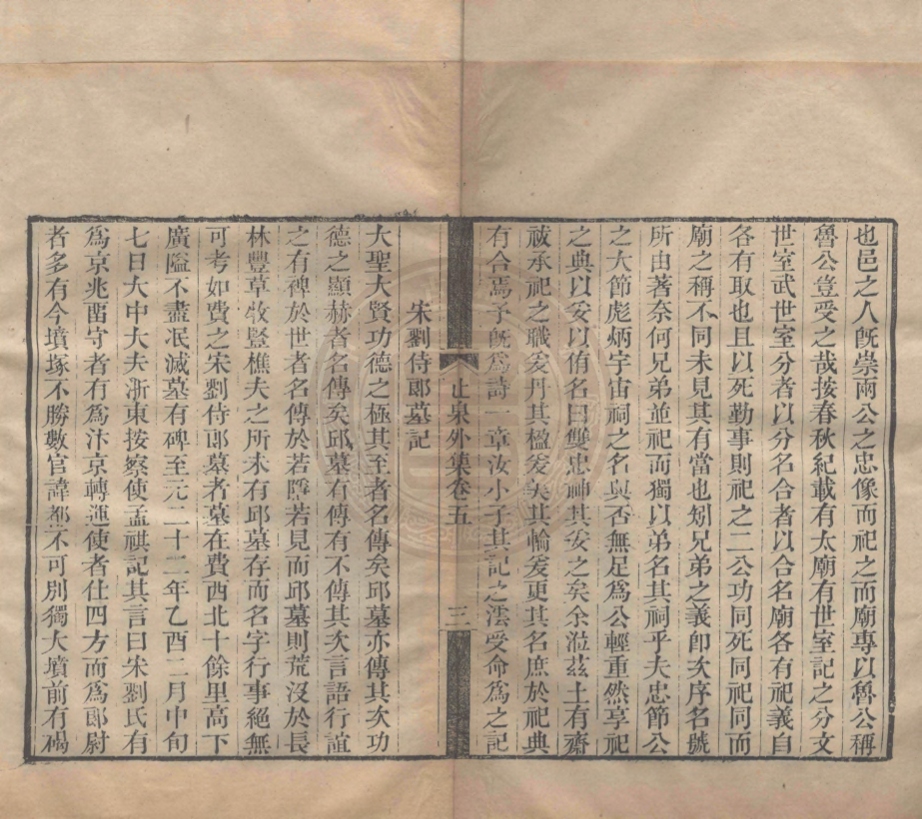 也邑之人旣崇兩公之忠像而祀之而廟專以魯公稱
魯公豈受之哉按春秋紀載有太廟有世室記之分文
世室武世室分者以分名合者以合名廟各有祀義自
各有取也且以死勤事則祀之二公功同死同祀同而
廟之稱不同未見其有當也矧兄弟之義卽次序名號
所由著奈何兄弟並祀而獨以弟名其祠乎夫忠節公
之大節彪炳宇宙祠之名與否無足爲公輕重然享祀
之典以妥以侑名曰雙忠神其妥之矣余涖茲土有齋
祓承祀之職爰丹其楹爰奐其輪爰更其名庶於祀典
有合焉予旣爲詩一章汝小子其記之澐受命爲之記
止泉外集卷五
三
宋劉侍郎墓記
大聖大賢功德之極其至者名傳矣邱墓亦傳其次功
德之顯赫者名傳矣邱墓有傳有不傳其次言語行誼
之有碑於世者名傳於若隱若見而邱墓則荒沒於長
林豐草牧豎樵夫之所未有邱墓存而名字行事絕無
可考如費之宋劉侍郎墓者墓在費西北十餘里高下
廣隘不盡泯滅墓有碑至元二十二年乙酉二月中旬
七日大中大夫浙東按察使孟祺記其言曰宋劉氏有
爲京兆留守者有爲汴京轉運使者仕四方而爲郎尉
者多有今墳塚不勝數官諱都不可別獨大墳前有碣